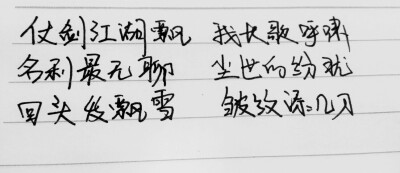 仗剑江湖飘 我长歌呼啸
名利最无聊 尘世的纷扰
回头发飘雪 皱纹添几刀